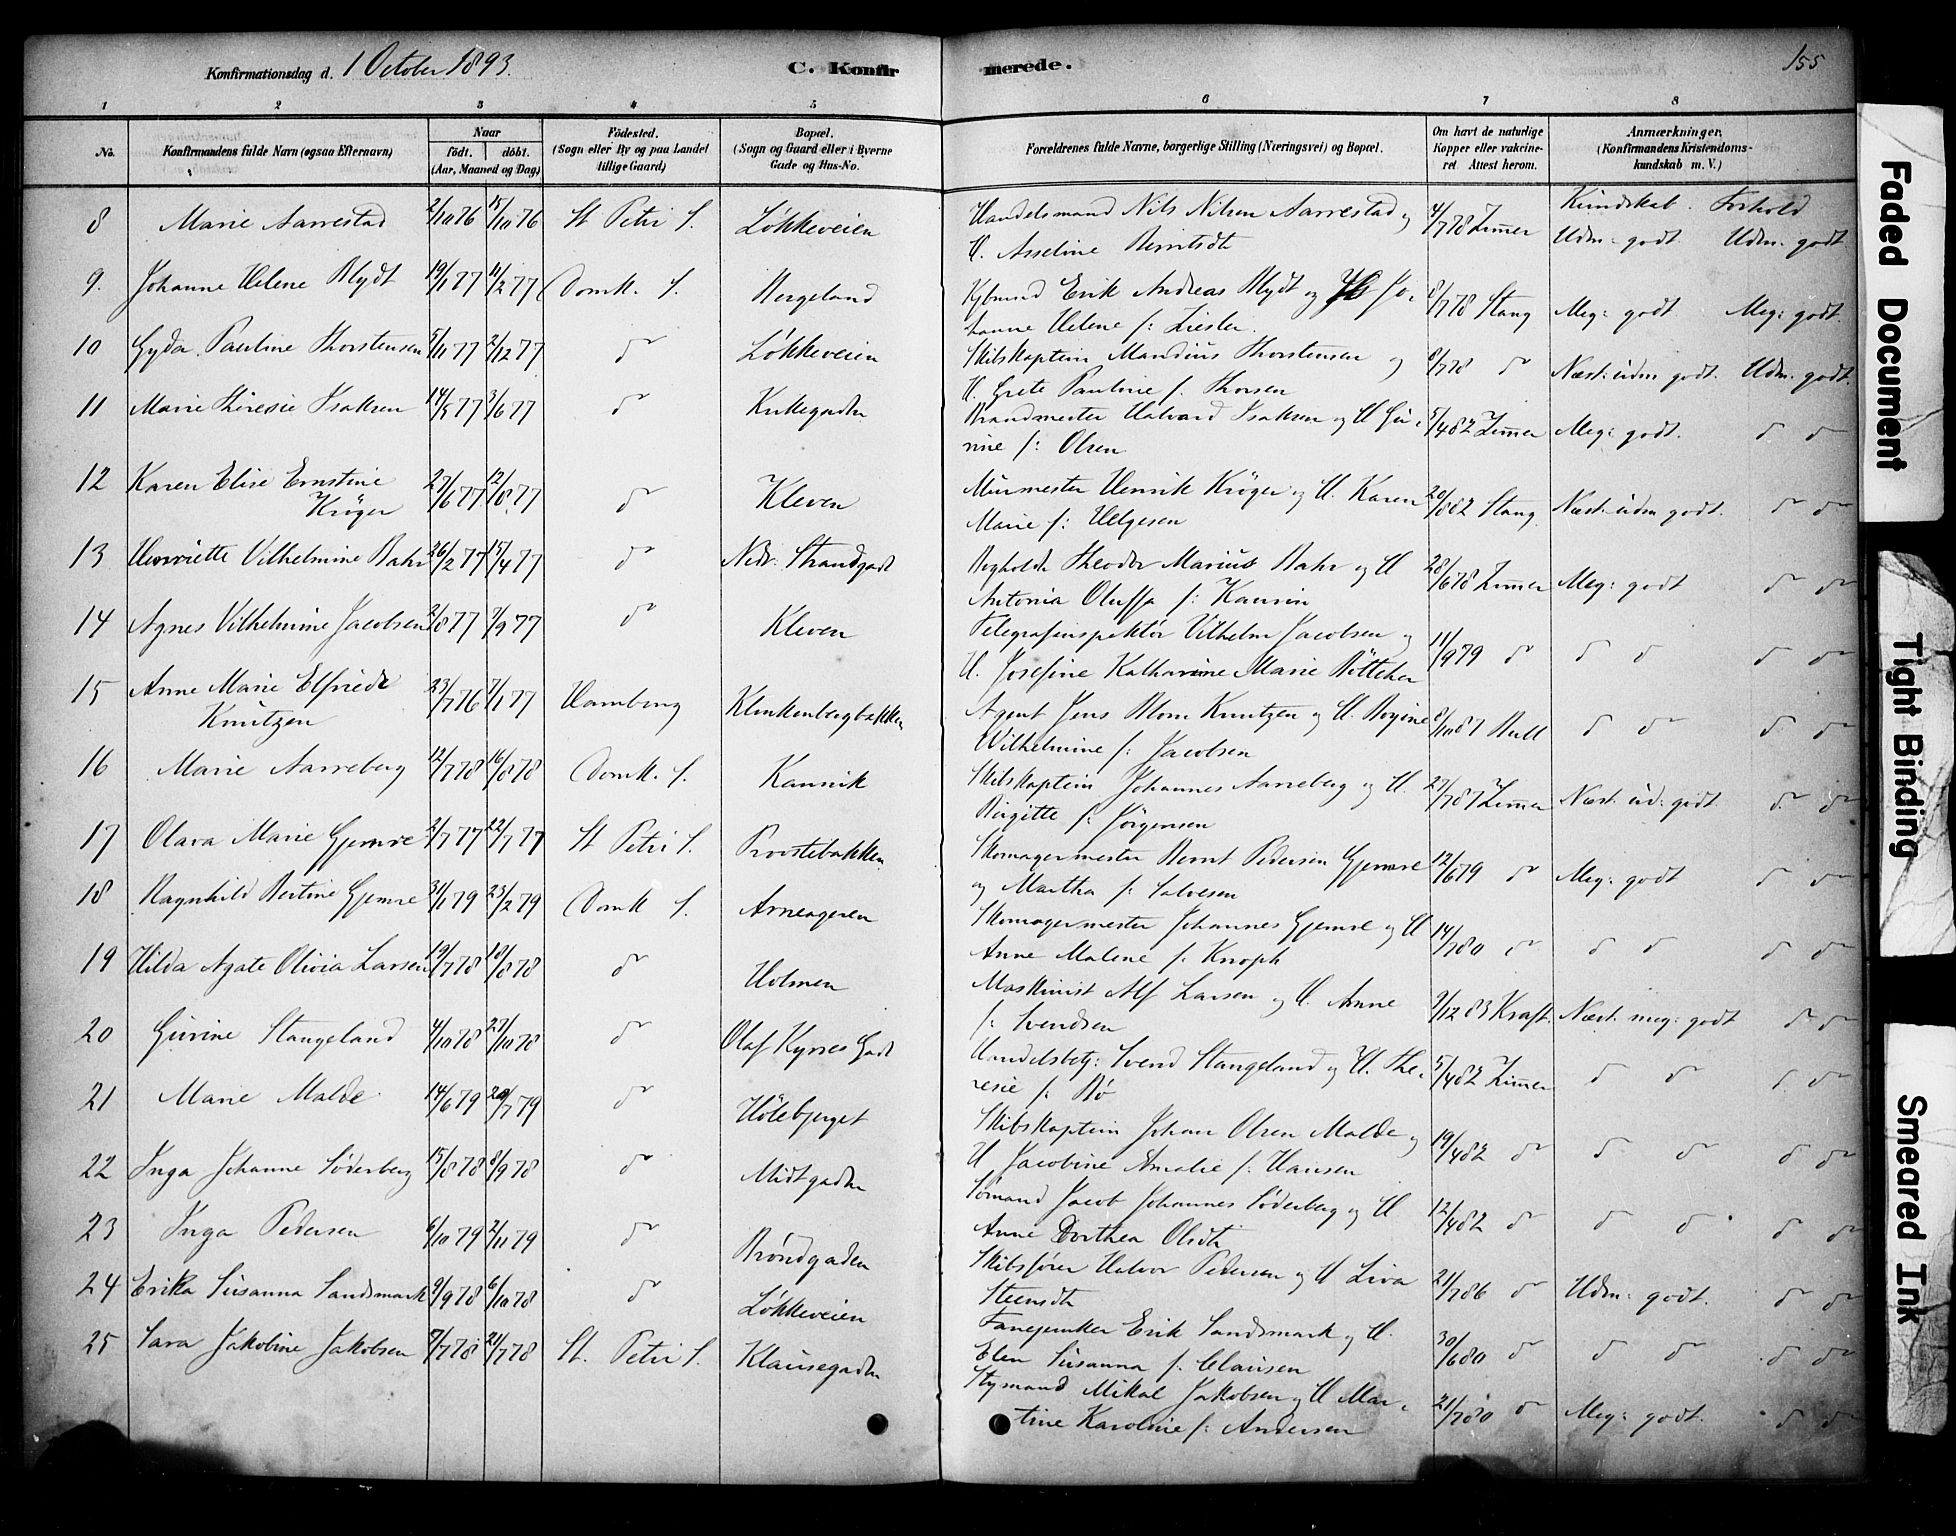 Konfirmationsdag d. 1 October 1893.
C. Konfirmerede.
155
1 2 3 4 5 6 7 8
No.
Konfirmandens fulde Navn (ogsaa Efternavn)
Naar
født. døbt.
(Aar, Maaned og Dag)
Fødested.
(Sogn eller By og paa Landet
tillige Gaard)
Bopæl.
(Sogn og Gaard eller i Byerne
Gade og Hus-No.
Forældrenes fulde Navne, borgerlige Stilling (Næringsvei) og Bopæl.
Om havt de naturlige
Kopper eller vakcine-
ret Attest herom.
Anmærkninger.
(Konfirmandens Kristendoms-
kundskab m. V.)
Kundskab. Forhold
8 Marie Aarrestad 2/10 76 15/10 76 St Petri S. Løkkeveien Handelsmand Nils Nilsen Aarrestad og 4/7 78 Zimer Udm: godt Udm. godt
H. Asseline Berntsdt
9. Johanne Helene Blydt 19/1 77 11/2 77 Domk. S. Bergeland Kjøbmd Erik Andreas Blydt og H Jo- 8/7 78 Stang Meg: godt Meg: godt.
hanne Helene f: Ziesler.
10 Gyda Pauline Thorstensen 5/11 77 2/12 77 do Løkkeveien Skibskaptein Mandius Thorstensen og 8/7 78 do Næst: udm godt. Udm. godt.
H. Grete Pauline f. Thorsen
11 Marie Theresie Isaksen 14/5 77 3/6 77 do Kirkegaden Brandmester Halvard Isaksen og H Gu- 5/4 82 Zimer Meg: godt. do do
rine f: Olsen
12 Karen Elise Ernstine 27/6 77 12/8 77 do Kleven Murmester Henrik Krøger og H. Karen 20/8 82 Stang Næst: udm godt. do do
Krøger
Marie f: Helgesen
13 Henriette Vilhelmine Bahr 26/2 77 15/4 77 do Nedr. Strandgade Bogholder Theodor Marius Bahr og H 28/6 78 Zimer Meg: godt do do
Antonia Oluffa f: Kaurin
14 Agnes Vilhelmine Jacobsen 2/8 77 7/9 77 do Kleven Telegrafinspektør Vilhelm Jacobsen og 11/9 79 do do do do do
H. Josefine Katharine Marie Bøttcher
15 Anne Marie Elfriede 23/7 76 7/1 77 Hamburg Klinkenbergbakken Agent Jens Blom Knutzen og H. Regine 8/10 87 Bull do do do do
Knutzen
Wilhelmine f: Jacobsen
16 Marie Aarreberg 12/7 78 16/8 78 Domk. S. Kannik Skibskaptein Johannes Aarreberg og H. 27/7 87 Zimer Næst: ud: godt do do
Birgitte f: Jørgensen
17 Olava Marie Gjemre 2/7 77 22/7 77 St Petri S. Provstebakken Skomagermester Bernt Pedersen Gjemre 12/6 79 do Meg: godt do do
og Martha f: Salvesen
18 Ragnhild Bertine Gjemre 31/1 79 23/2 79 Domk S. Arneageren Skomagermester Johannes Gjemre og H 14/7 80 do do do do do
Anne Malene f: Knoph
19 Hilda Agate Olivia Larsen 19/7 78 18/8 78 do Holmen Maskinist Alf Larsen og H. Anne 9/12 83 Kraft. Næst: meg: godt do do
f: Svendsen
20 Gurine Stangeland 4/10 78 27/10 78 do Olaf Kyrres Gade Handelsbetj: Svend Stangeland og H. The- 5/4 82 Zimer do do do do
resie f: Bø
21 Marie Malde 14/6 79 20/7 79 do Hølebjerget Skibskaptein Johan Olsen Malde og 19/4 82 do do do do do
H Jacobine Amalie f: Hansen
22 Inga Johanne Søderberg 15/8 78 8/9 78 do Midtgaden Sømand Jacob Johannes Søderberg og H 12/4 82 do do do do do
Anne Dorthea Olsdt
23 Inga Pedersen 6/10 79 2/11 79 do Brøndgaden Skibsfører Halvor Pedersen og H Liva 21/7 86 do Udm: godt. do do
Steensdt
24 Erika Susanna Sandsmark 9/9 78 6/10 78 do Løkkeveien Fanejunker Erik Sandsmark og H. 30/6 80 do do do do do
Elen Susanna f. Clausen
25 Sara Jakobine Jakobsen 7/7 78 21/7 78 St. Petri S. Klausegaden Styrmand Mikal Jakobsen og H Mar- 21/7 80 do Meg: godt. do do
tine Karoline f: Andersen
Faded Document
Tight Binding
Smeared Ink